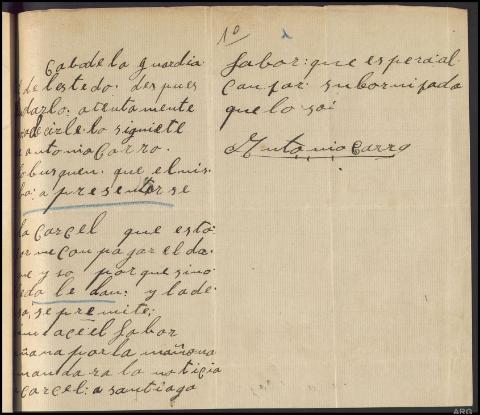 10
Cabo de la guardia
de lestedo. des pues
darlo: atentamente
decirle lo siguiete
antonio Carro.
busquen. que el mis-
a presentarse
la Carcel que esto
con pagar el da-
y so porque sino
le dan: y lade
se premite:
ace el fabor
ñana por la mañana
mandara la noticia
carcel: a santiago
fabor: que espera al-
canzar su bornizada
que lo soi
Antonio Carro
ARG